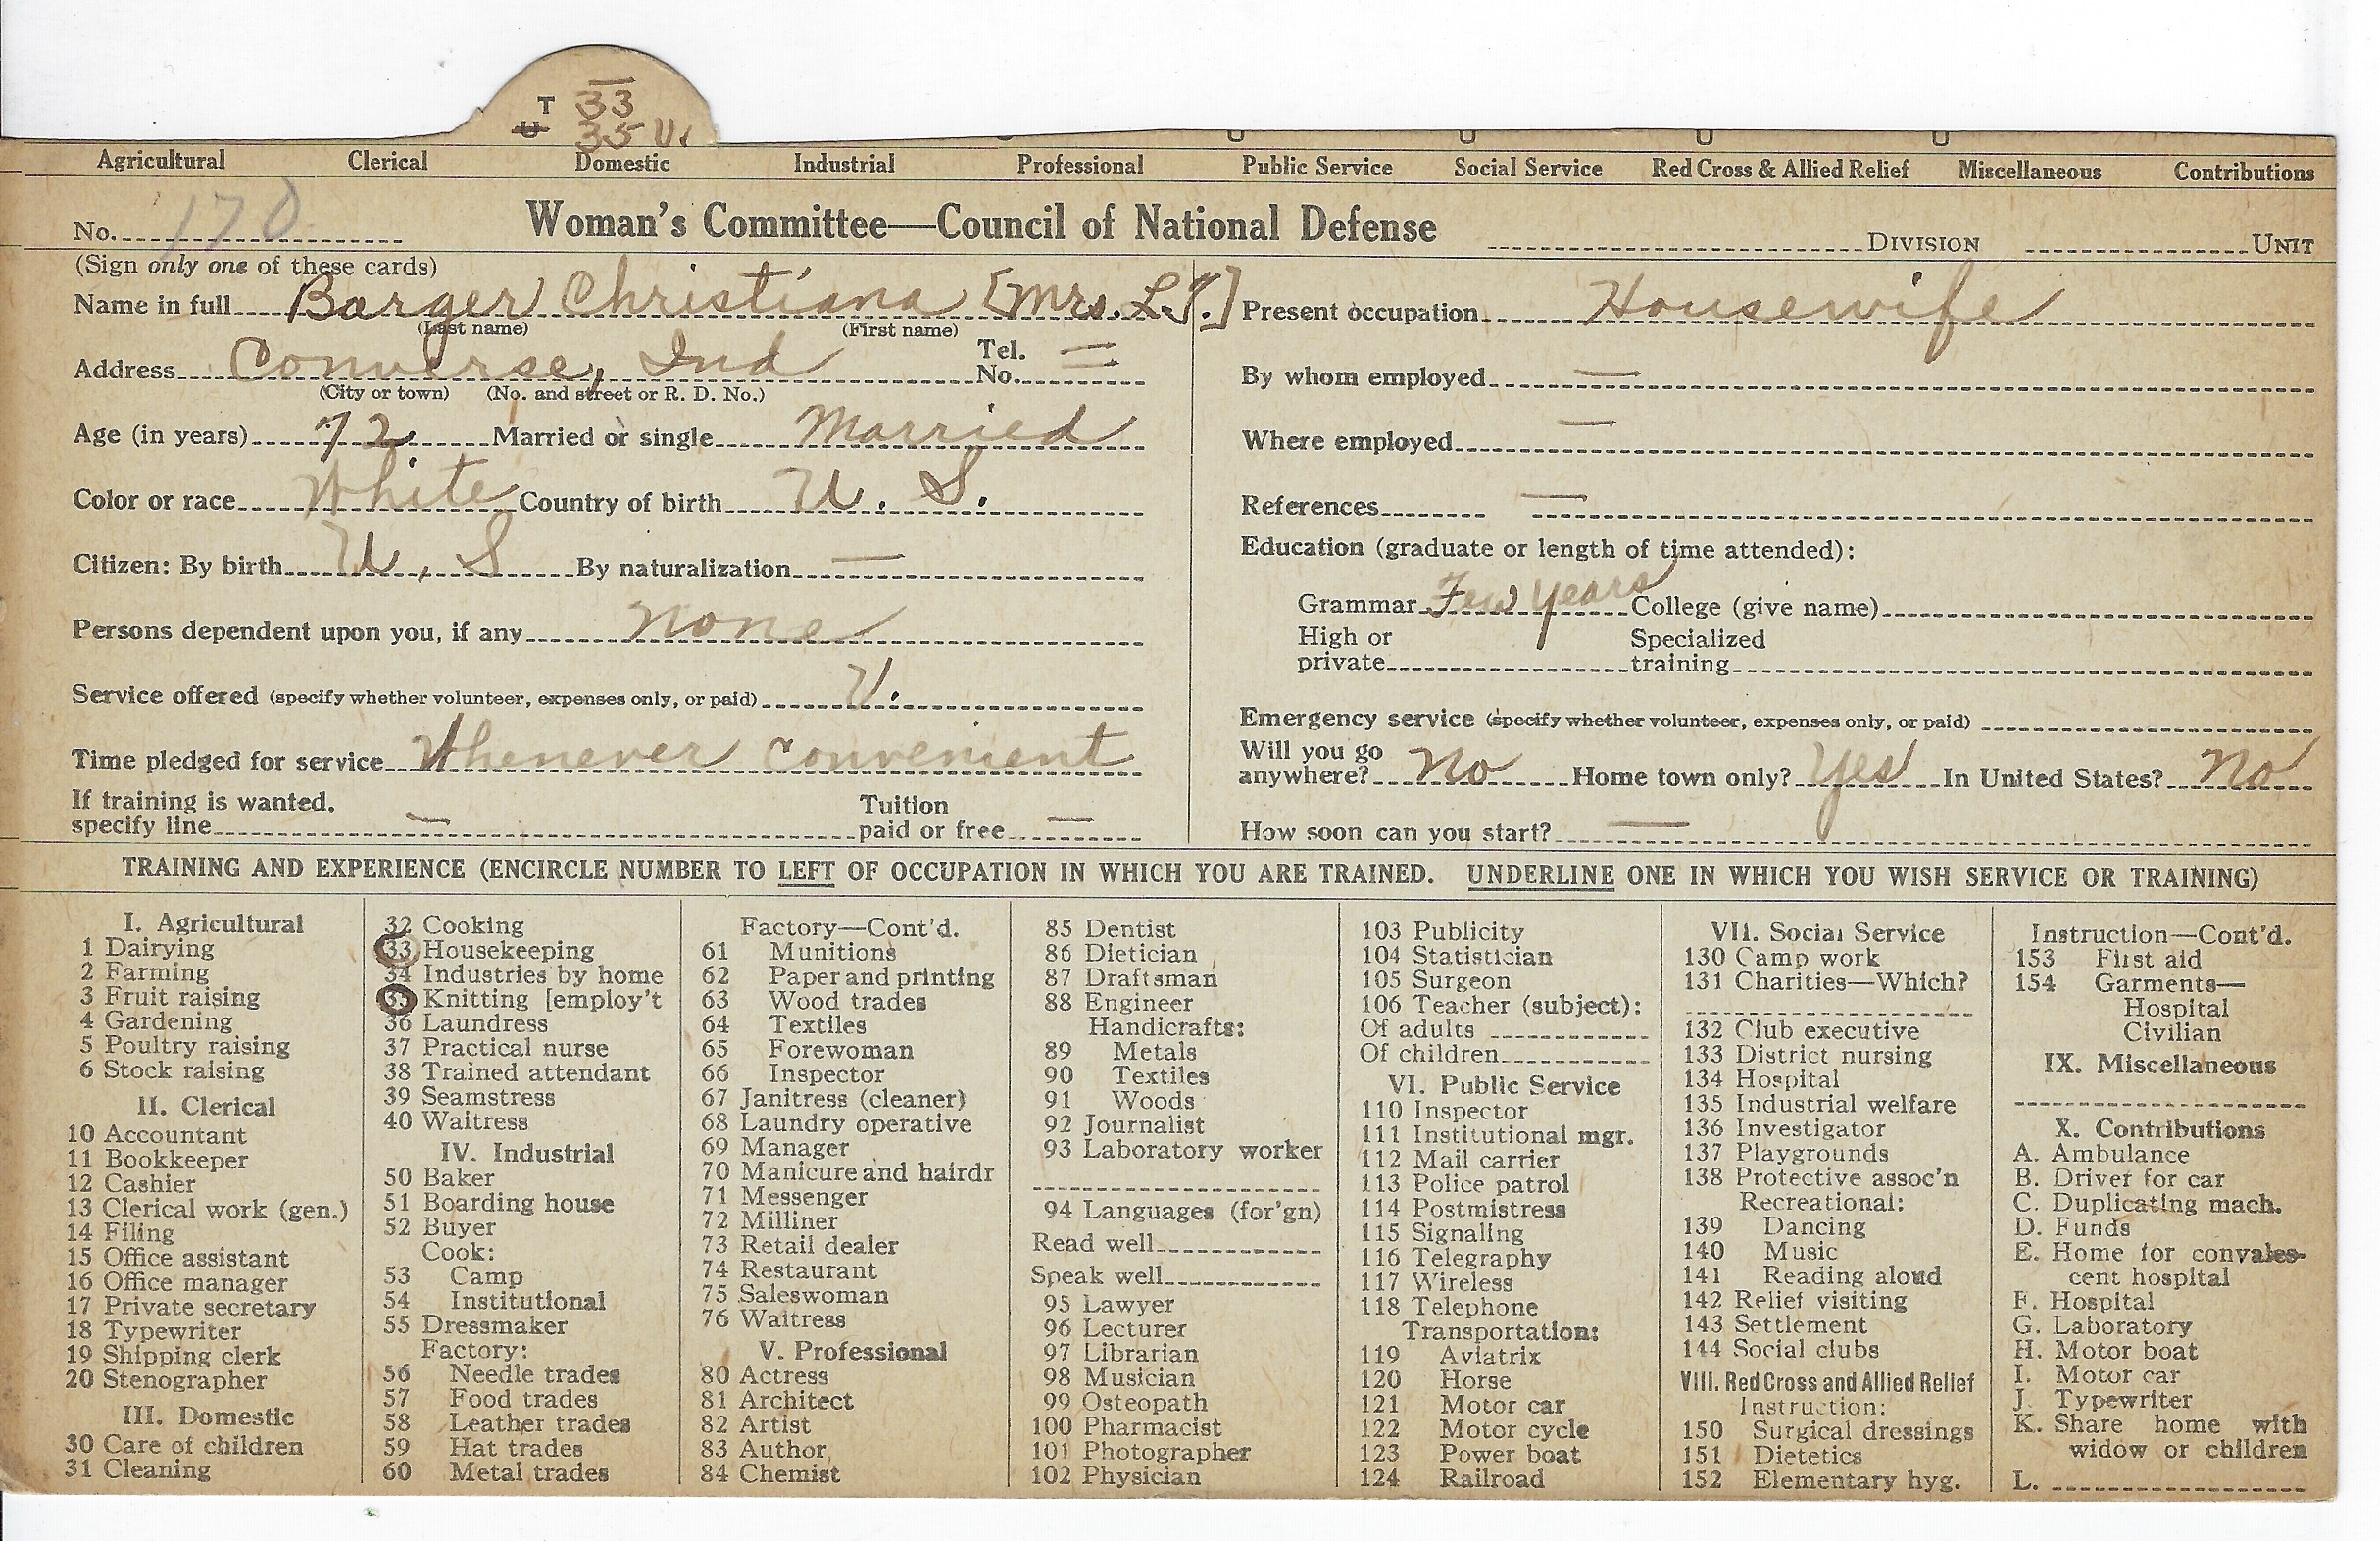 T 33
U 35 V.
Agricultural Clerical Domestic Industrial Professional Public Service Social Service Red Cross & Allied Relief Miscellaneous Contributions
No. 170 Woman's Committee—Council of National Defense DIVISION UNIT
(Sign only one of these cards)
Name in full Barger Christiana [Mrs. L.T.]
(Last name) (First name)
Address Converse, Ind Tel. No. —
(City or town) (No. and street or R. D. No.)
Age (in years) 72 Married or single Married
Color or race White Country of birth U. S.
Citizen: By birth U. S By naturalization —
Persons dependent upon you, if any None
Service offered (specify whether volunteer, expenses only, or paid) V.
Time pledged for service Whenever convenient
If training is wanted. Tuition
specify line — paid or free —
Present occupation Housewife
By whom employed —
Where employed —
References —
Education (graduate or length of time attended):
Grammar Few years College (give name)
High or Specialized
private training
Emergency service (specify whether volunteer, expenses only, or paid)
Will you go
anywhere? No Home town only? Yes In United States? No
How soon can you start? —
TRAINING AND EXPERIENCE (ENCIRCLE NUMBER TO LEFT OF OCCUPATION IN WHICH YOU ARE TRAINED. UNDERLINE ONE IN WHICH YOU WISH SERVICE OR TRAINING)
I. Agricultural
1 Dairying
2 Farming
3 Fruit raising
4 Gardening
5 Poultry raising
6 Stock raising
II. Clerical
10 Accountant
11 Bookkeeper
12 Cashier
13 Clerical work (gen.)
14 Filing
15 Office assistant
16 Office manager
17 Private secretary
18 Typewriter
19 Shipping clerk
20 Stenographer
III. Domestic
30 Care of children
31 Cleaning
32 Cooking
33 Housekeeping
34 Industries by home
35 Knitting [employ't
36 Laundress
37 Practical nurse
38 Trained attendant
39 Seamstress
40 Waitress
IV. Industrial
50 Baker
51 Boarding house
52 Buyer
Cook:
53 Camp
54 Institutional
55 Dressmaker
Factory:
56 Needle trades
57 Food trades
58 Leather trades
59 Hat trades
60 Metal trades
Factory—Cont'd.
61 Munitions
62 Paper and printing
63 Wood trades
64 Textiles
65 Forewoman
66 Inspector
67 Janitress (cleaner)
68 Laundry operative
69 Manager
70 Manicure and hairdr
71 Messenger
72 Milliner
73 Retail dealer
74 Restaurant
75 Saleswoman
76 Waitress
V. Professional
80 Actress
81 Architect
82 Artist
83 Author
84 Chemist
85 Dentist
86 Dietician
87 Draftsman
88 Engineer
Handicrafts:
89 Metals
90 Textiles
91 Woods
92 Journalist
93 Laboratory worker
94 Languages (for'gn)
Read well
Speak well
95 Lawyer
96 Lecturer
97 Librarian
98 Musician
99 Osteopath
100 Pharmacist
101 Photographer
102 Physician
103 Publicity
104 Statistician
105 Surgeon
106 Teacher (subject):
Of adults
Of children
VI. Public Service
110 Inspector
111 Institutional mgr.
112 Mail carrier
113 Police patrol
114 Postmistress
115 Signaling
116 Telegraphy
117 Wireless
118 Telephone
Transportation:
119 Aviatrix
120 Horse
121 Motor car
122 Motor cycle
123 Power boat
124 Railroad
VII. Social Service
130 Camp work
131 Charities—Which?
132 Club executive
133 District nursing
134 Hospital
135 Industrial welfare
136 Investigator
137 Playgrounds
138 Protective assoc'n
Recreational:
139 Dancing
140 Music
141 Reading aloud
142 Relief visiting
143 Settlement
144 Social clubs
VIII. Red Cross and Allied Relief
Instruction:
150 Surgical dressings
151 Dietetics
152 Elementary hyg.
Instruction—Cont'd.
153 First aid
154 Garments—
Hospital
Civilian
IX. Miscellaneous
X. Contributions
A. Ambulance
B. Driver for car
C. Duplicating mach.
D. Funds
E. Home for convales-
cent hospital
F. Hospital
G. Laboratory
H. Motor boat
I. Motor car
J. Typewriter
K. Share home with
widow or children
L.